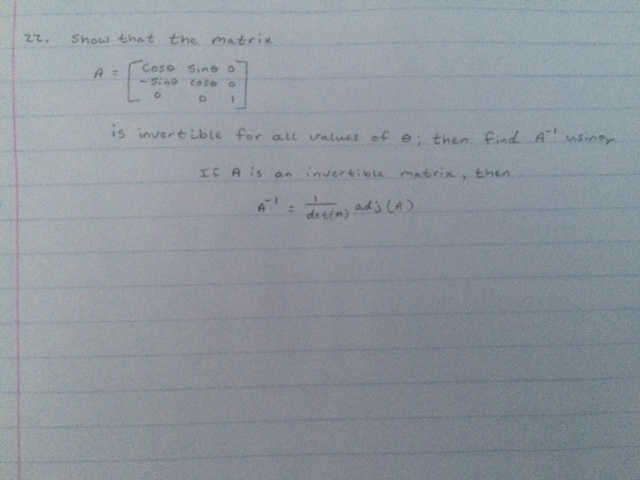 22. Show that the matrix
A = [ cosθ sinθ 0
-sinθ cosθ 0
0 0 1 ]
is invertible for all values of θ; then find A⁻¹ using
If A is an invertible matrix, then
A⁻¹ = 1/det(A) adj(A)